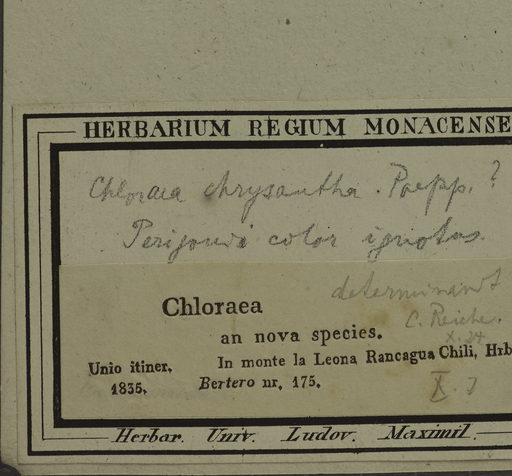 HERBARIUM REGIUM MONACENSE
Chloraea chrysantha. Poepp. ?
Perigonii color ignotus
determinavit
Chloraea
C. Reiche.
X. 24
an nova species.
Unio itiner. In monte la Leona Rancagua Chili, Hrb
1835. Bertero nr. 175.
X. J
Herbar. Univ. Ludov. Maximil.